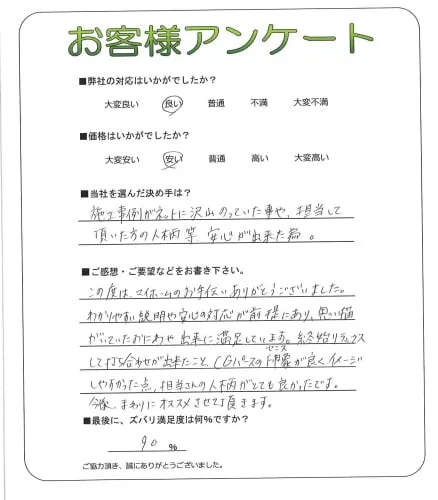 お客様アンケート
■弊社の対応はいかがでしたか？
大変良い 良い 普通 不満 大変不満
■価格はいかがでしたか？
大変安い 安い 普通 高い 大変高い
■当社を選んだ決め手は？
施工事例がネットに沢山のっていた事や、担当して
頂いた方の人柄等 安心が出来た為。
■ご感想・ご要望などをお書き下さい。
この度は、マイホームのお手伝いありがとうございました。
わかりやすい説明や安心の対応が前提にあり、思い描
がいていたおにわや 出来に満足しています。終始リラックス
して打ち合わせが出来たこと、CGパースの印象が良くイメージ
しやすかった点、担当さんの人柄がとても良かったです。
今後、まわりにオススメさせて頂きます。
■最後に、ズバリ満足度は何%ですか？
90 %
ご協力頂き、誠にありがとうございました。